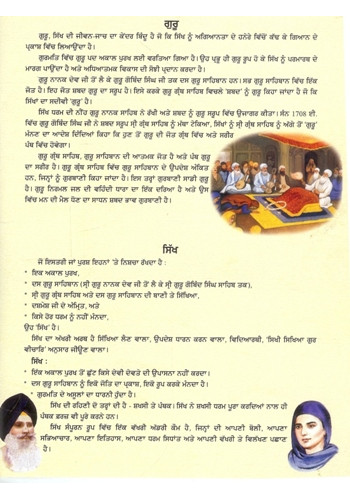 ਗੁਰੂ
ਗੁਰੂ, ਸਿੱਖ ਦੀ ਜੀਵਨ-ਜਾਚ ਦਾ ਕੇਂਦਰ ਬਿੰਦੂ ਹੈ ਜੋ ਕਿ ਸਿੱਖ ਨੂੰ ਅਗਿਆਨਤਾ ਦੇ ਹਨੇਰੇ ਵਿੱਚੋਂ ਕੱਢ ਕੇ ਗਿਆਨ ਦੇ
ਪ੍ਰਕਾਸ਼ ਵਿੱਚ ਲਿਆਉਂਦਾ ਹੈ।
ਗੁਰਮਤਿ ਵਿੱਚ ਗੁਰੂ ਪਦ ਅਕਾਲ ਪੁਰਖ ਲਈ ਵਰਤਿਆ ਗਿਆ ਹੈ। ਉਹ ਪ੍ਰਭੂ ਹੀ ਗੁਰੂ ਰੂਪ ਹੋ ਕੇ ਸਿੱਖ ਨੂੰ ਪਰਮਾਰਥ ਦੇ
ਮਾਰਗ ਪਾਉਂਦਾ ਹੈ ਅਤੇ ਅਧਿਆਤਮਕ ਵਿਕਾਸ ਦੀ ਸੋਝੀ ਪ੍ਰਦਾਨ ਕਰਦਾ ਹੈ।
ਗੁਰੂ ਨਾਨਕ ਦੇਵ ਜੀ ਤੋਂ ਲੈ ਕੇ ਗੁਰੂ ਗੋਬਿੰਦ ਸਿੰਘ ਜੀ ਤਕ ਦਸ ਗੁਰੂ ਸਾਹਿਬਾਨ ਹਨ। ਸਭ ਗੁਰੂ ਸਾਹਿਬਾਨ ਵਿੱਚ ਇੱਕ
ਜੋਤ ਹੈ। ਇਹ ਜੋਤ ਸ਼ਬਦ ਗੁਰੂ ਦਾ ਸਰੂਪ ਹੈ। ਇਸੇ ਕਰਕੇ ਗੁਰੂ ਗ੍ਰੰਥ ਸਾਹਿਬ ਵਿਚਲੇ 'ਸ਼ਬਦ' ਨੂੰ ਗੁਰੂ ਕਿਹਾ ਜਾਂਦਾ ਹੈ ਜੋ ਕਿ
ਸਿੱਖਾਂ ਦਾ ਸਦੀਵੀ 'ਗੁਰੂ' ਹੈ।
ਸਿੱਖ ਧਰਮ ਦੀ ਨੀਂਹ ਗੁਰੂ ਨਾਨਕ ਸਾਹਿਬ ਨੇ ਰੱਖੀ ਅਤੇ ਸ਼ਬਦ ਨੂੰ ਗੁਰੂ ਸਰੂਪ ਵਿੱਚ ਉਜਾਗਰ ਕੀਤਾ। ਸੰਨ 1708 ਈ.
ਵਿੱਚ ਗੁਰੂ ਗੋਬਿੰਦ ਸਿੰਘ ਜੀ ਨੇ ਸ਼ਬਦ ਸਰੂਪ ਸ੍ਰੀ ਗੁਰੂ ਗ੍ਰੰਥ ਸਾਹਿਬ ਨੂੰ ਮੱਥਾ ਟੇਕਿਆ, ਸਿੱਖਾਂ ਨੂੰ ਸ੍ਰੀ ਗੁਰੂ ਗ੍ਰੰਥ ਸਾਹਿਬ ਨੂੰ ਅੱਗੇ ਤੋਂ 'ਗੁਰੂ'
ਮੰਨਣ ਦਾ ਆਦੇਸ਼ ਦਿੰਦਿਆਂ ਕਿਹਾ ਕਿ ਹੁਣ ਤੋਂ ਗੁਰੂ ਦੀ ਜੋਤ ਗ੍ਰੰਥ ਵਿੱਚ ਅਤੇ ਸਰੀਰ
ਪੰਥ ਵਿੱਚ ਹੋਵੇਗਾ।
ਗੁਰੂ ਗ੍ਰੰਥ ਸਾਹਿਬ, ਗੁਰੂ ਸਾਹਿਬਾਨ ਦੀ ਆਤਮਕ ਜੋਤ ਹੈ ਅਤੇ ਪੰਥ ਗੁਰੂ
ਦਾ ਸਰੀਰ ਹੈ। ਗੁਰੂ ਗ੍ਰੰਥ ਸਾਹਿਬ ਵਿੱਚ ਗੁਰੂ ਸਾਹਿਬਾਨ ਦੇ ਉਪਦੇਸ਼ ਅੰਕਿਤ
ਹਨ, ਜਿਨ੍ਹਾਂ ਨੂੰ ਗੁਰਬਾਣੀ ਕਿਹਾ ਜਾਂਦਾ ਹੈ। ਇਸ ਤਰ੍ਹਾਂ ਗੁਰਬਾਣੀ ਸਾਡੀ ਗੁਰੂ
ਹੈ। ਗੁਰੂ ਨਿਰਮਲ ਜਲ ਦੀ ਵਹਿੰਦੀ ਧਾਰਾ ਦਾ ਇੱਕ ਦਰਿਆ ਹੈ ਅਤੇ ਉਸ
ਵਿੱਚ ਮਨ ਦੀ ਮੈਲ ਧੋਣ ਦਾ ਸਾਧਨ ਸ਼ਬਦ ਭਾਵ ਗੁਰਬਾਣੀ ਹੈ।
ਸਿੱਖ
ਜੋ ਇਸਤਰੀ ਜਾਂ ਪੁਰਸ਼ ਇਹਨਾਂ 'ਤੇ ਨਿਸ਼ਚਾ ਰੱਖਦਾ ਹੈ :
* ਇਕ ਅਕਾਲ ਪੁਰਖ,
* ਦਸ ਗੁਰੂ ਸਾਹਿਬਾਨ (ਸ੍ਰੀ ਗੁਰੂ ਨਾਨਕ ਦੇਵ ਜੀ ਤੋਂ ਲੈ ਕੇ ਸ੍ਰੀ ਗੁਰੂ ਗੋਬਿੰਦ ਸਿੰਘ ਸਾਹਿਬ ਤਕ),
* ਸ੍ਰੀ ਗੁਰੂ ਗ੍ਰੰਥ ਸਾਹਿਬ ਅਤੇ ਦਸ ਗੁਰੂ ਸਾਹਿਬਾਨ ਦੀ ਬਾਣੀ ਤੇ ਸਿੱਖਿਆ,
* ਦਸਮੇਸ਼ ਜੀ ਦੇ ਅੰਮ੍ਰਿਤ, ਅਤੇ
* ਕਿਸੇ ਹੋਰ ਧਰਮ ਨੂੰ ਨਹੀਂ ਮੰਨਦਾ,
ਉਹ 'ਸਿੱਖ' ਹੈ।
ਸਿੱਖ ਦਾ ਅੱਖਰੀ ਅਰਥ ਹੈ ਸਿੱਖਿਆ ਲੈਣ ਵਾਲਾ, ਉਪਦੇਸ਼ ਧਾਰਨ ਕਰਨ ਵਾਲਾ, ਵਿਦਿਆਰਥੀ, 'ਸਿਖੀ ਸਿਖਿਆ ਗੁਰ
ਵੀਚਾਰਿ' ਅਨੁਸਾਰ ਜੀਉਣ ਵਾਲਾ।
ਸਿੱਖ :
* ਇੱਕ ਅਕਾਲ ਪੁਰਖ ਤੋਂ ਛੁੱਟ ਕਿਸੇ ਦੇਵੀ ਦੇਵਤੇ ਦੀ ਉਪਾਸਨਾ ਨਹੀਂ ਕਰਦਾ।
* ਦਸ ਗੁਰੂ ਸਾਹਿਬਾਨ ਨੂੰ ਇਕੋ ਜੋਤਿ ਦਾ ਪ੍ਰਕਾਸ਼, ਇਕੋ ਰੂਪ ਕਰਕੇ ਮੰਨਦਾ ਹੈ।
* ਗੁਰਮਤਿ ਦੇ ਅਸੂਲਾਂ ਦਾ ਧਾਰਨੀ ਹੁੰਦਾ ਹੈ।
ਸਿੱਖ ਦੀ ਰਹਿਣੀ ਦੋ ਤਰ੍ਹਾਂ ਦੀ ਹੈ - ਸ਼ਖਸੀ ਤੇ ਪੰਥਕ। ਸਿੱਖ ਨੇ ਸ਼ਖਸੀ ਧਰਮ ਪੂਰਾ ਕਰਦਿਆਂ ਨਾਲ ਹੀ
ਪੰਥਕ ਫ਼ਰਜ਼ ਵੀ ਪੂਰੇ ਕਰਨੇ ਹਨ।
ਸਿੱਖ ਸੰਪੂਰਨ ਰੂਪ ਵਿੱਚ ਇੱਕ ਵੱਖਰੀ ਅੱਡਰੀ ਕੌਮ ਹੈ, ਜਿਨ੍ਹਾਂ ਦੀ ਆਪਣੀ ਬੋਲੀ, ਆਪਣਾ
ਸਭਿਆਚਾਰ, ਆਪਣਾ ਇਤਿਹਾਸ, ਆਪਣਾ ਧਰਮ ਸਿਧਾਂਤ ਅਤੇ ਆਪਣੀ ਵੱਖਰੀ ਤੇ ਵਿਲੱਖਣ ਪਛਾਣ
ਹੈ।